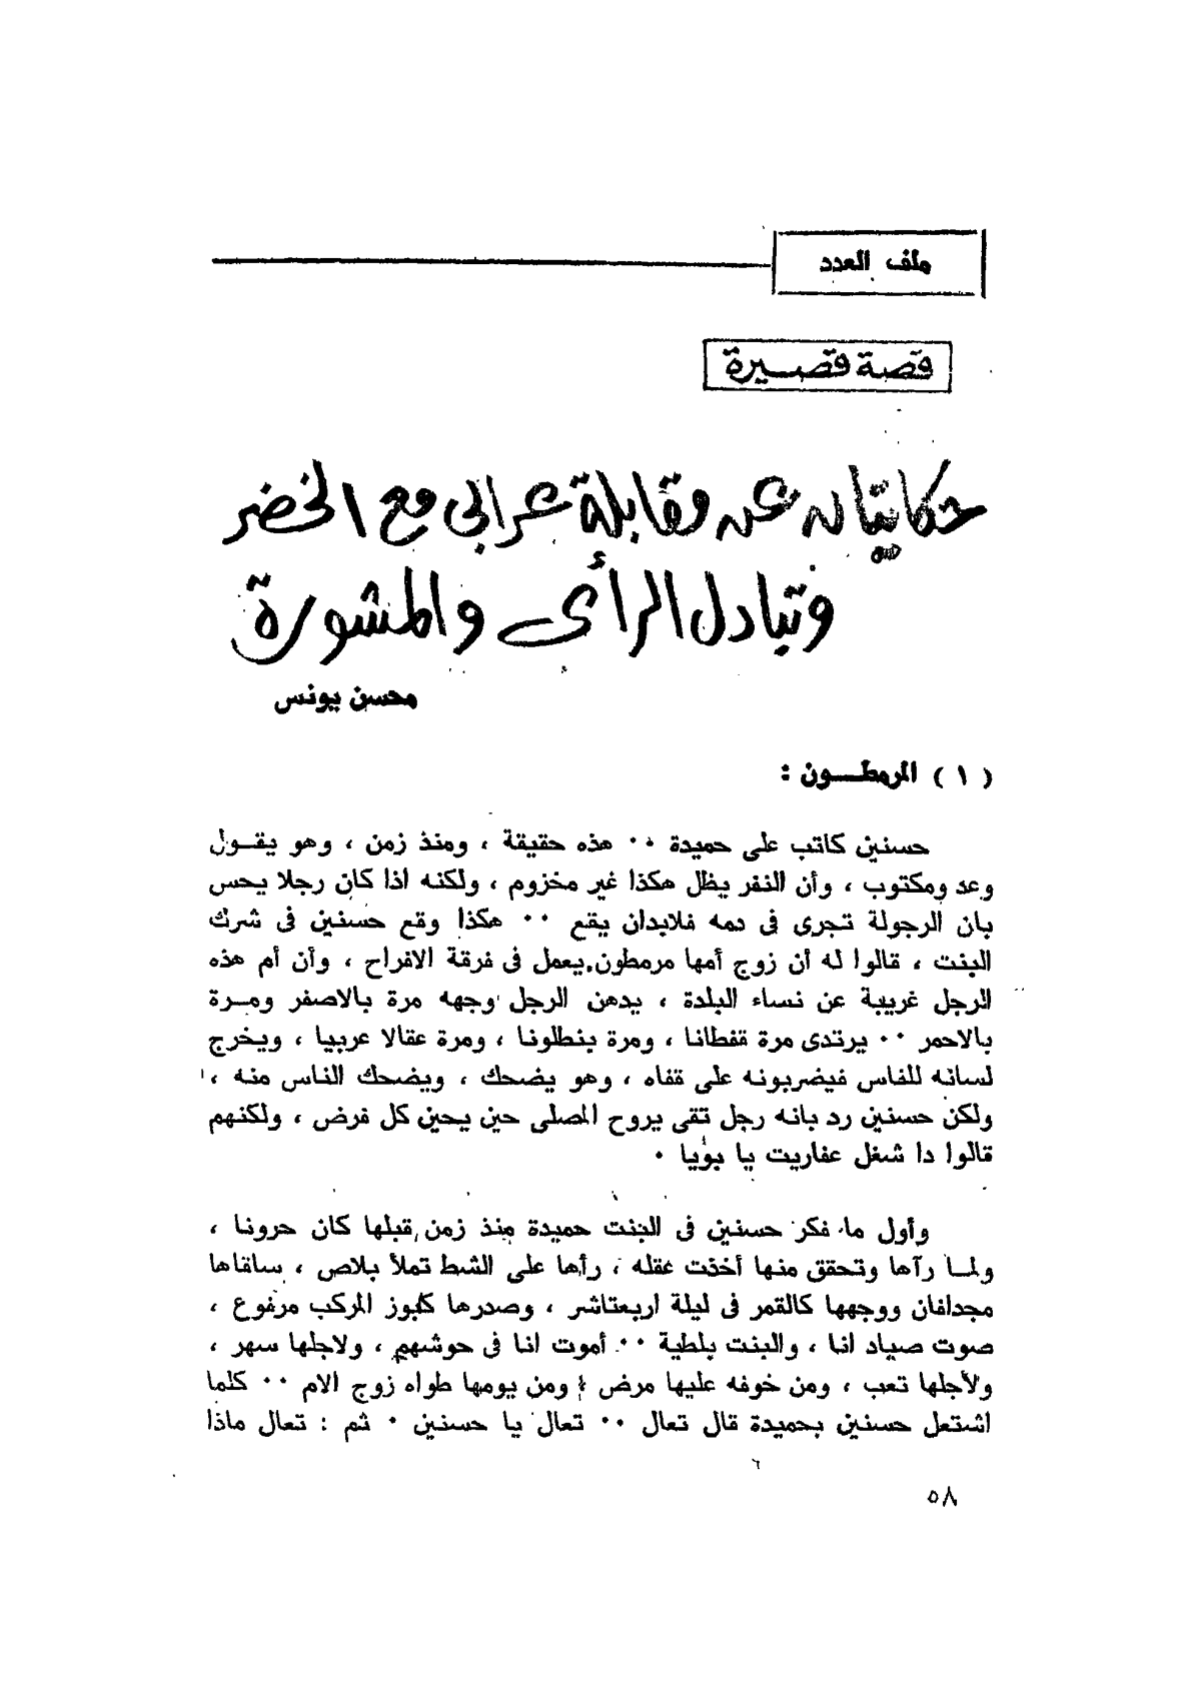 ملف العدد
قصة قصيرة
حكايتان عن مقابلة عرابى مع الخضر
وتبادل الرأى والمشورة
محسن يونس
( ١ ) المرمطـــون :
حسنين كاتب على حميدة ٠٠ هذه حقيقة ، ومنذ زمن ، وهو يقـول
وعد ومكتوب ، وأن النفر يظل هكذا غير مخزوم ، ولكنه اذا كان رجلا يحس
بان الرجولة تجرى فى دمه فلابدان يقع ٠٠ هكذا وقع حسنين فى شرك
البنت ، قالوا له أن زوج أمها مرمطون يعمل فى فرقة الافراح ، وأن أم هذه
الرجل غريبة عن نساء البلدة ، يدهن الرجل وجهه مرة بالاصفر ومـرة
بالاحمر ٠٠ يرتدى مرة قفطانا ، ومرة بنطلونا ، ومرة عقالا عربيا ، ويخرج
لسانه للناس فيضربونه على قفاه ، وهو يضحك ، ويضحك الناس منه ،
ولكن حسنين رد بانه رجل تقى يروح المصلى حين يحين كل فرض ، ولكنهم
قالوا دا شغل عفاريت يا بؤيا ٠
وأول ما فكر حسنين فى البنت حميدة منذ زمن قبلها كان حرونا ،
ولمـا رآها وتحقق منها أخذت عقله ، رأها على الشط تملأ بلاص ، ساقاها
مجدافان ووجهها كالقمر فى ليلة اربعتاشر ، وصدرها كلبوز المركب مرفوع ،
صوت صياد انا ، والبنت بلطية ٠٠ أموت انا فى حوشهم ، ولاجلها سهر ،
ولأجلها تعب ، ومن خوفه عليها مرض ؛ ومن يومها طواه زوج الام ٠٠ كلما
اشتعل حسنين بحميدة قال تعال ٠٠ تعال يا حسنين ٠ ثم : تعال ماذا
٥٨